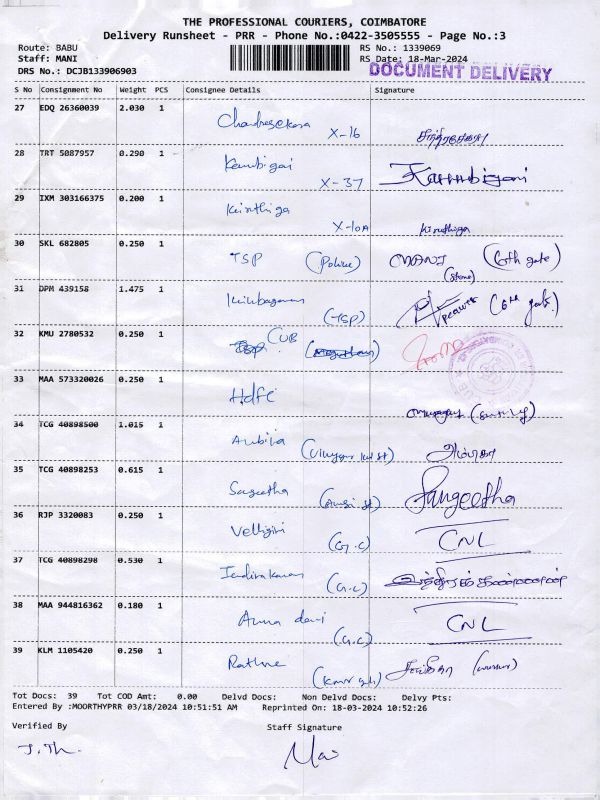 THE PROFESSIONAL COURIERS, COIMBATORE
Delivery Runsheet - PRR - Phone No.:0422-3505555 - Page No.:3
Route: BABU
RS No.: 1339069
Staff: MANI
RS Date: 18-Mar-2024
DRS No.: DCJB133906903
DOCUMENT DELIVERY
S No Consignment No Weight PCS Consignee Details Signature
27 EDQ 26360039 2.030 1
Chandrasekara X-16
28 TRT 5087957 0.290 1
X-37
29 IXM 303166375 0.200 1
Kiruthiga X-10A Kiruthiga
30 SKL 682805 0.250 1
TSP (Police) (6th gate)
31 DPM 439158 1.475 1
(TSP)
32 KMU 2780532 0.250 1
CUB
33 MAA 573320026 0.250 1
Hdfc
34 TCG 40898500 1.015 1
Ambika அம்பிகா
35 TCG 40898253 0.615 1
Sangeetha Sangeetha
36 RJP 3320083 0.250 1
Velligiri (G.C) CNL
37 TCG 40898298 0.530 1
(G.C)
38 MAA 944816362 0.180 1
Anna (G.C) CNL
39 KLM 1105420 0.250 1
Rathne
Tot Docs: 39 Tot COD Amt: 0.00 Delvd Docs: Non Delvd Docs: Delvy Pts:
Entered By :MOORTHYPRR 03/18/2024 10:51:51 AM Reprinted On: 18-03-2024 10:52:26
Verified By Staff Signature